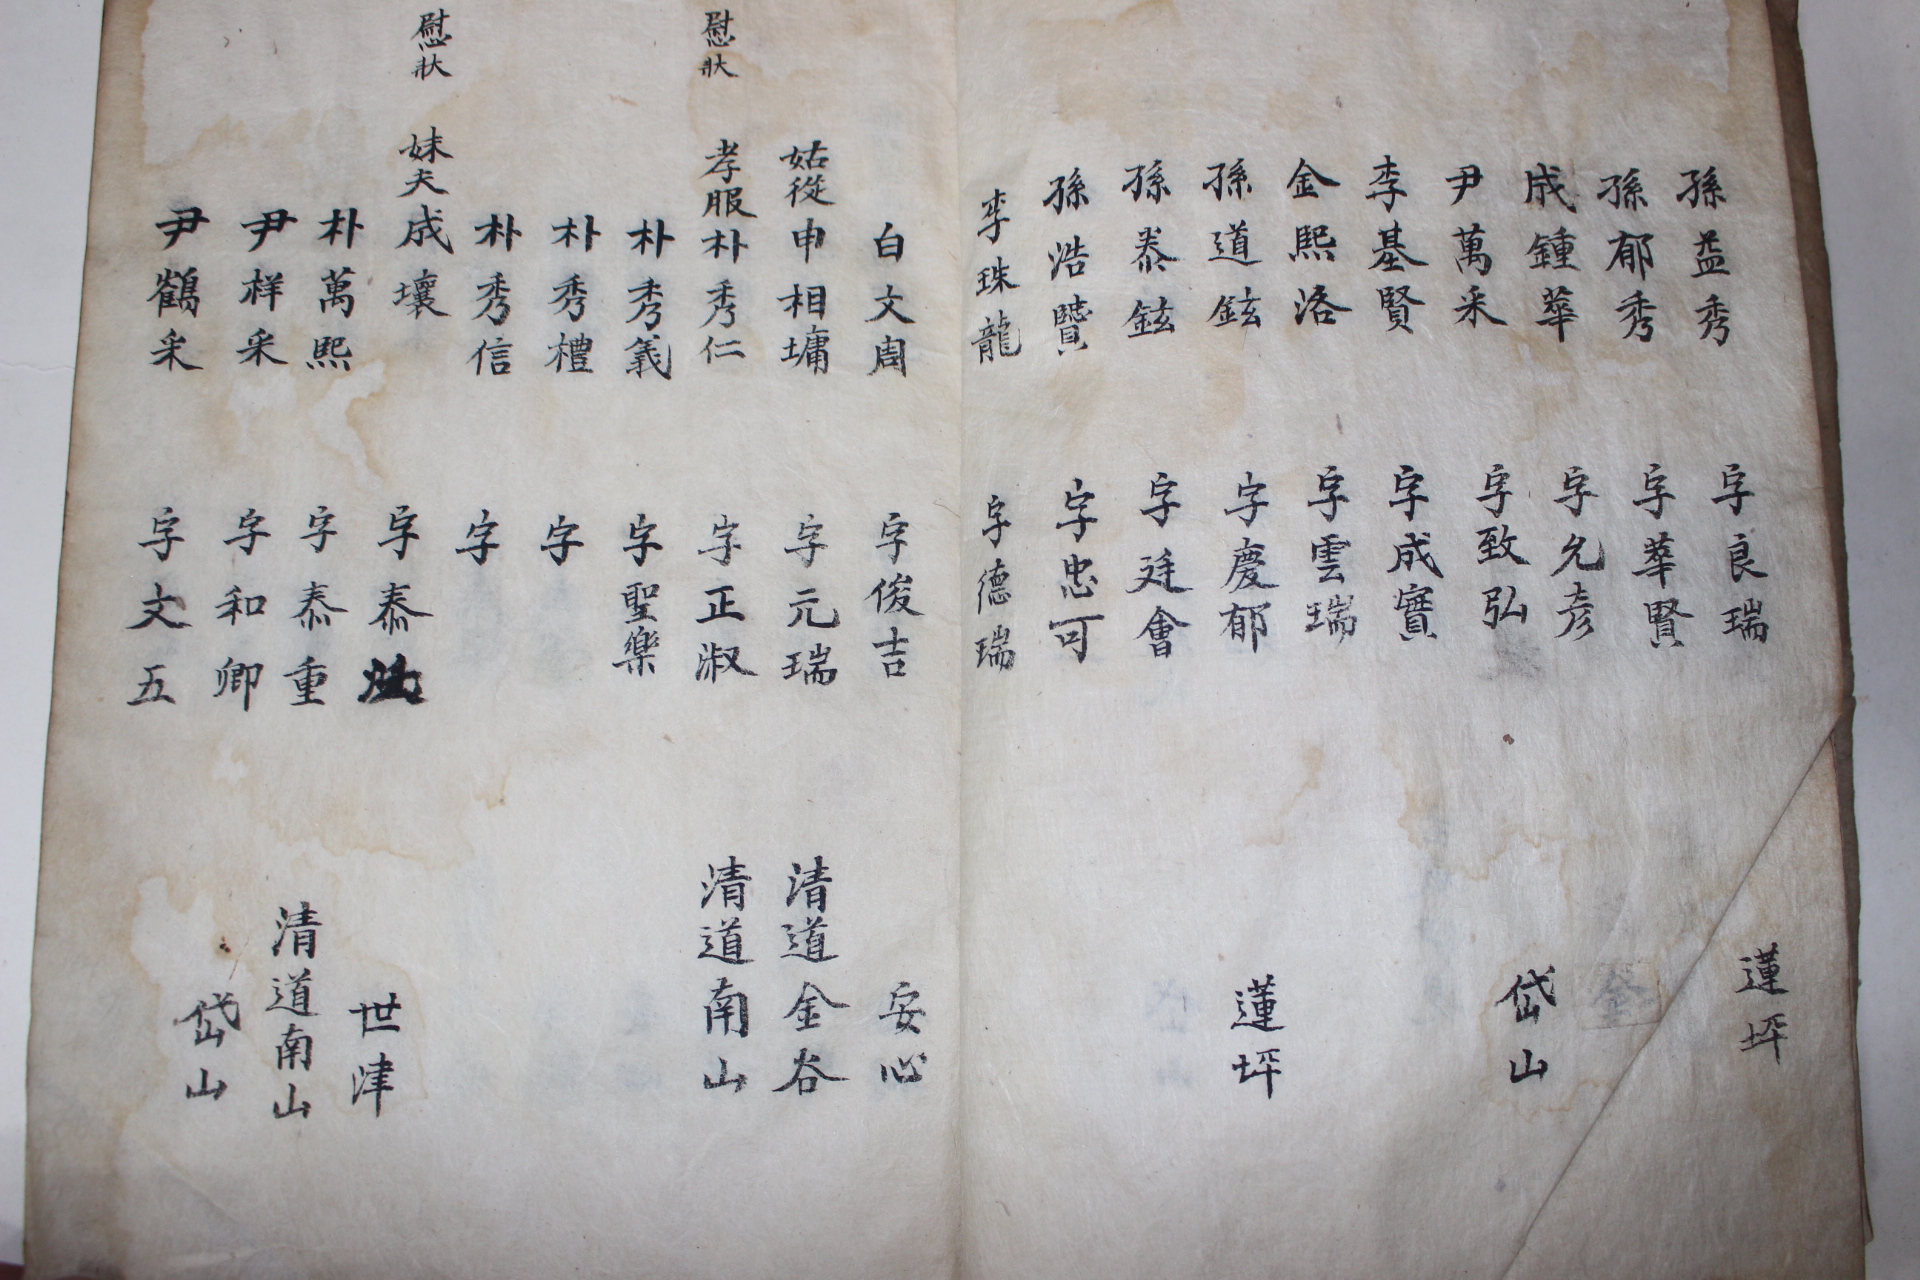 孫益秀 字良瑞 蓮坪
孫郁秀 字華賢
成鍾華 字允彦
尹萬采 字致弘 岱山
李基賢 字成實
金熙洛 字雲瑞
孫道鉉 字慶郁 蓮坪
孫泰鉉 字廷會
孫浩贒 字忠可
李珠龍 字德瑞
白文周 字俊吉 安心
姑從 申相墉 字元瑞 清道金谷
慰狀 孝服 朴秀仁 字正淑 清道南山
朴秀義 字聖樂
朴秀禮 字
朴秀信 字
慰狀 妹夫 成壤 字泰 世津
朴萬熙 字泰重 清道南山
尹样采 字和卿 岱山
尹鶴采 字文五